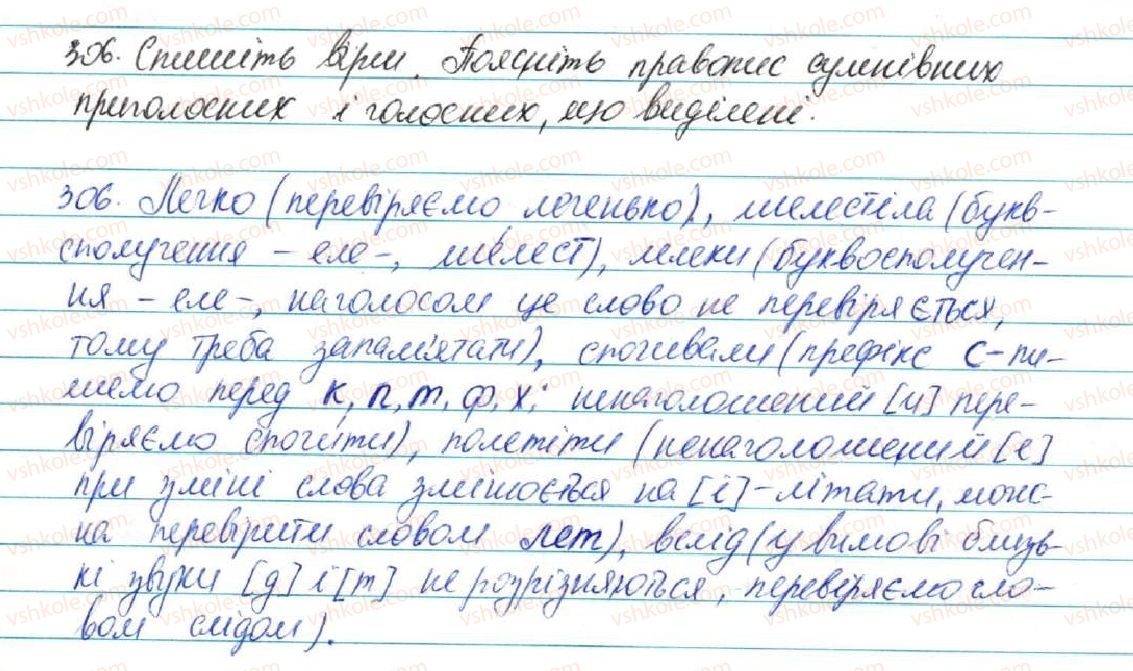 306. Спишіть вірш. Поясніть правопис сумнівних
приголосних і голосних, що виділені.
306. Легко (перевіряємо легенько), шелестіла (букв-
сполучення - еле-, шелест), лелеки (буквосполучен-
ня - еле-, наголосом це слово не перевіряється,
тому треба запам'ятати), спочивали (префікс с- пи-
шемо перед к, п, т, ф, х; ненаголошений [и] пере-
віряємо спочити), полетіти (ненаголошений [е]
при зміні слова змінюється на [і] - літати, мож-
на перевірити словом лет), вслід (у вимові близь-
кі звуки [д] і [т] не розрізняються, перевіряємо сло-
вом слідом).